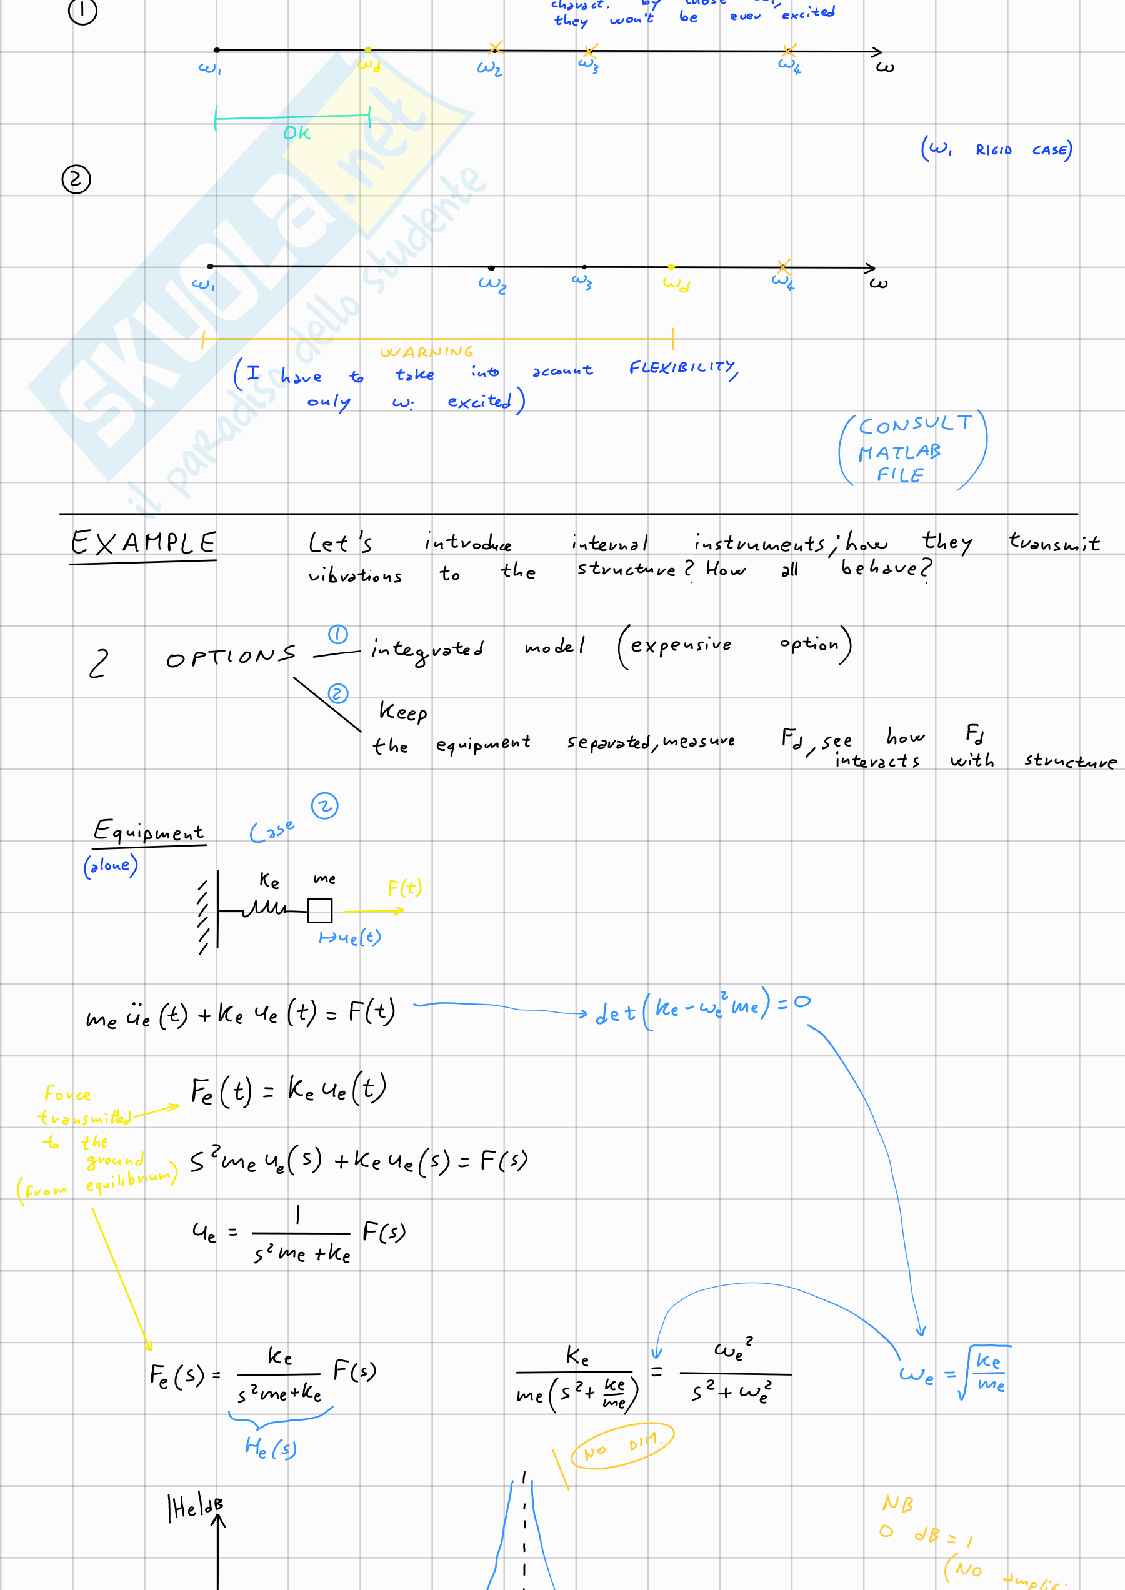 ①
charact. by those
they won't be ever excited
ω₁ ωd ω₂ ω₃ ω₄ ω
OK
(ω₁ RIGID CASE)
②
ω₁ ω₂ ω₃ ωd ω₄ ω
WARNING
(I have to take into account FLEXIBILITY,
only ωᵢ excited)
(CONSULT
MATLAB
FILE)
SKUOLA.net
il paradiso dello studente
EXAMPLE Let's introduce internal instruments; how they transmit
vibrations to the structure? How all behave?
2 OPTIONS ① integrated model (expensive option)
② Keep
the equipment separated, measure Fd, see how Fd
interacts with structure
Equipment Case ②
(alone)
Ke me F(t)
ue(t)
me üe(t) + Ke ue(t) = F(t) → det(Ke - ωe² me) = 0
Force
transmitted
to the
ground
(from equilibrium)
Fe(t) = Ke ue(t)
s² me ue(s) + Ke ue(s) = F(s)
ue = 1 / (s² me + Ke) F(s)
Fe(s) = Ke / (s² me + Ke) F(s)
He(s)
Ke / (me (s² + Ke/me)) = ωe² / (s² + ωe²)
ωe = √(Ke/me)
NO DIM.
|He|dB
NB
0 dB = 1
(No